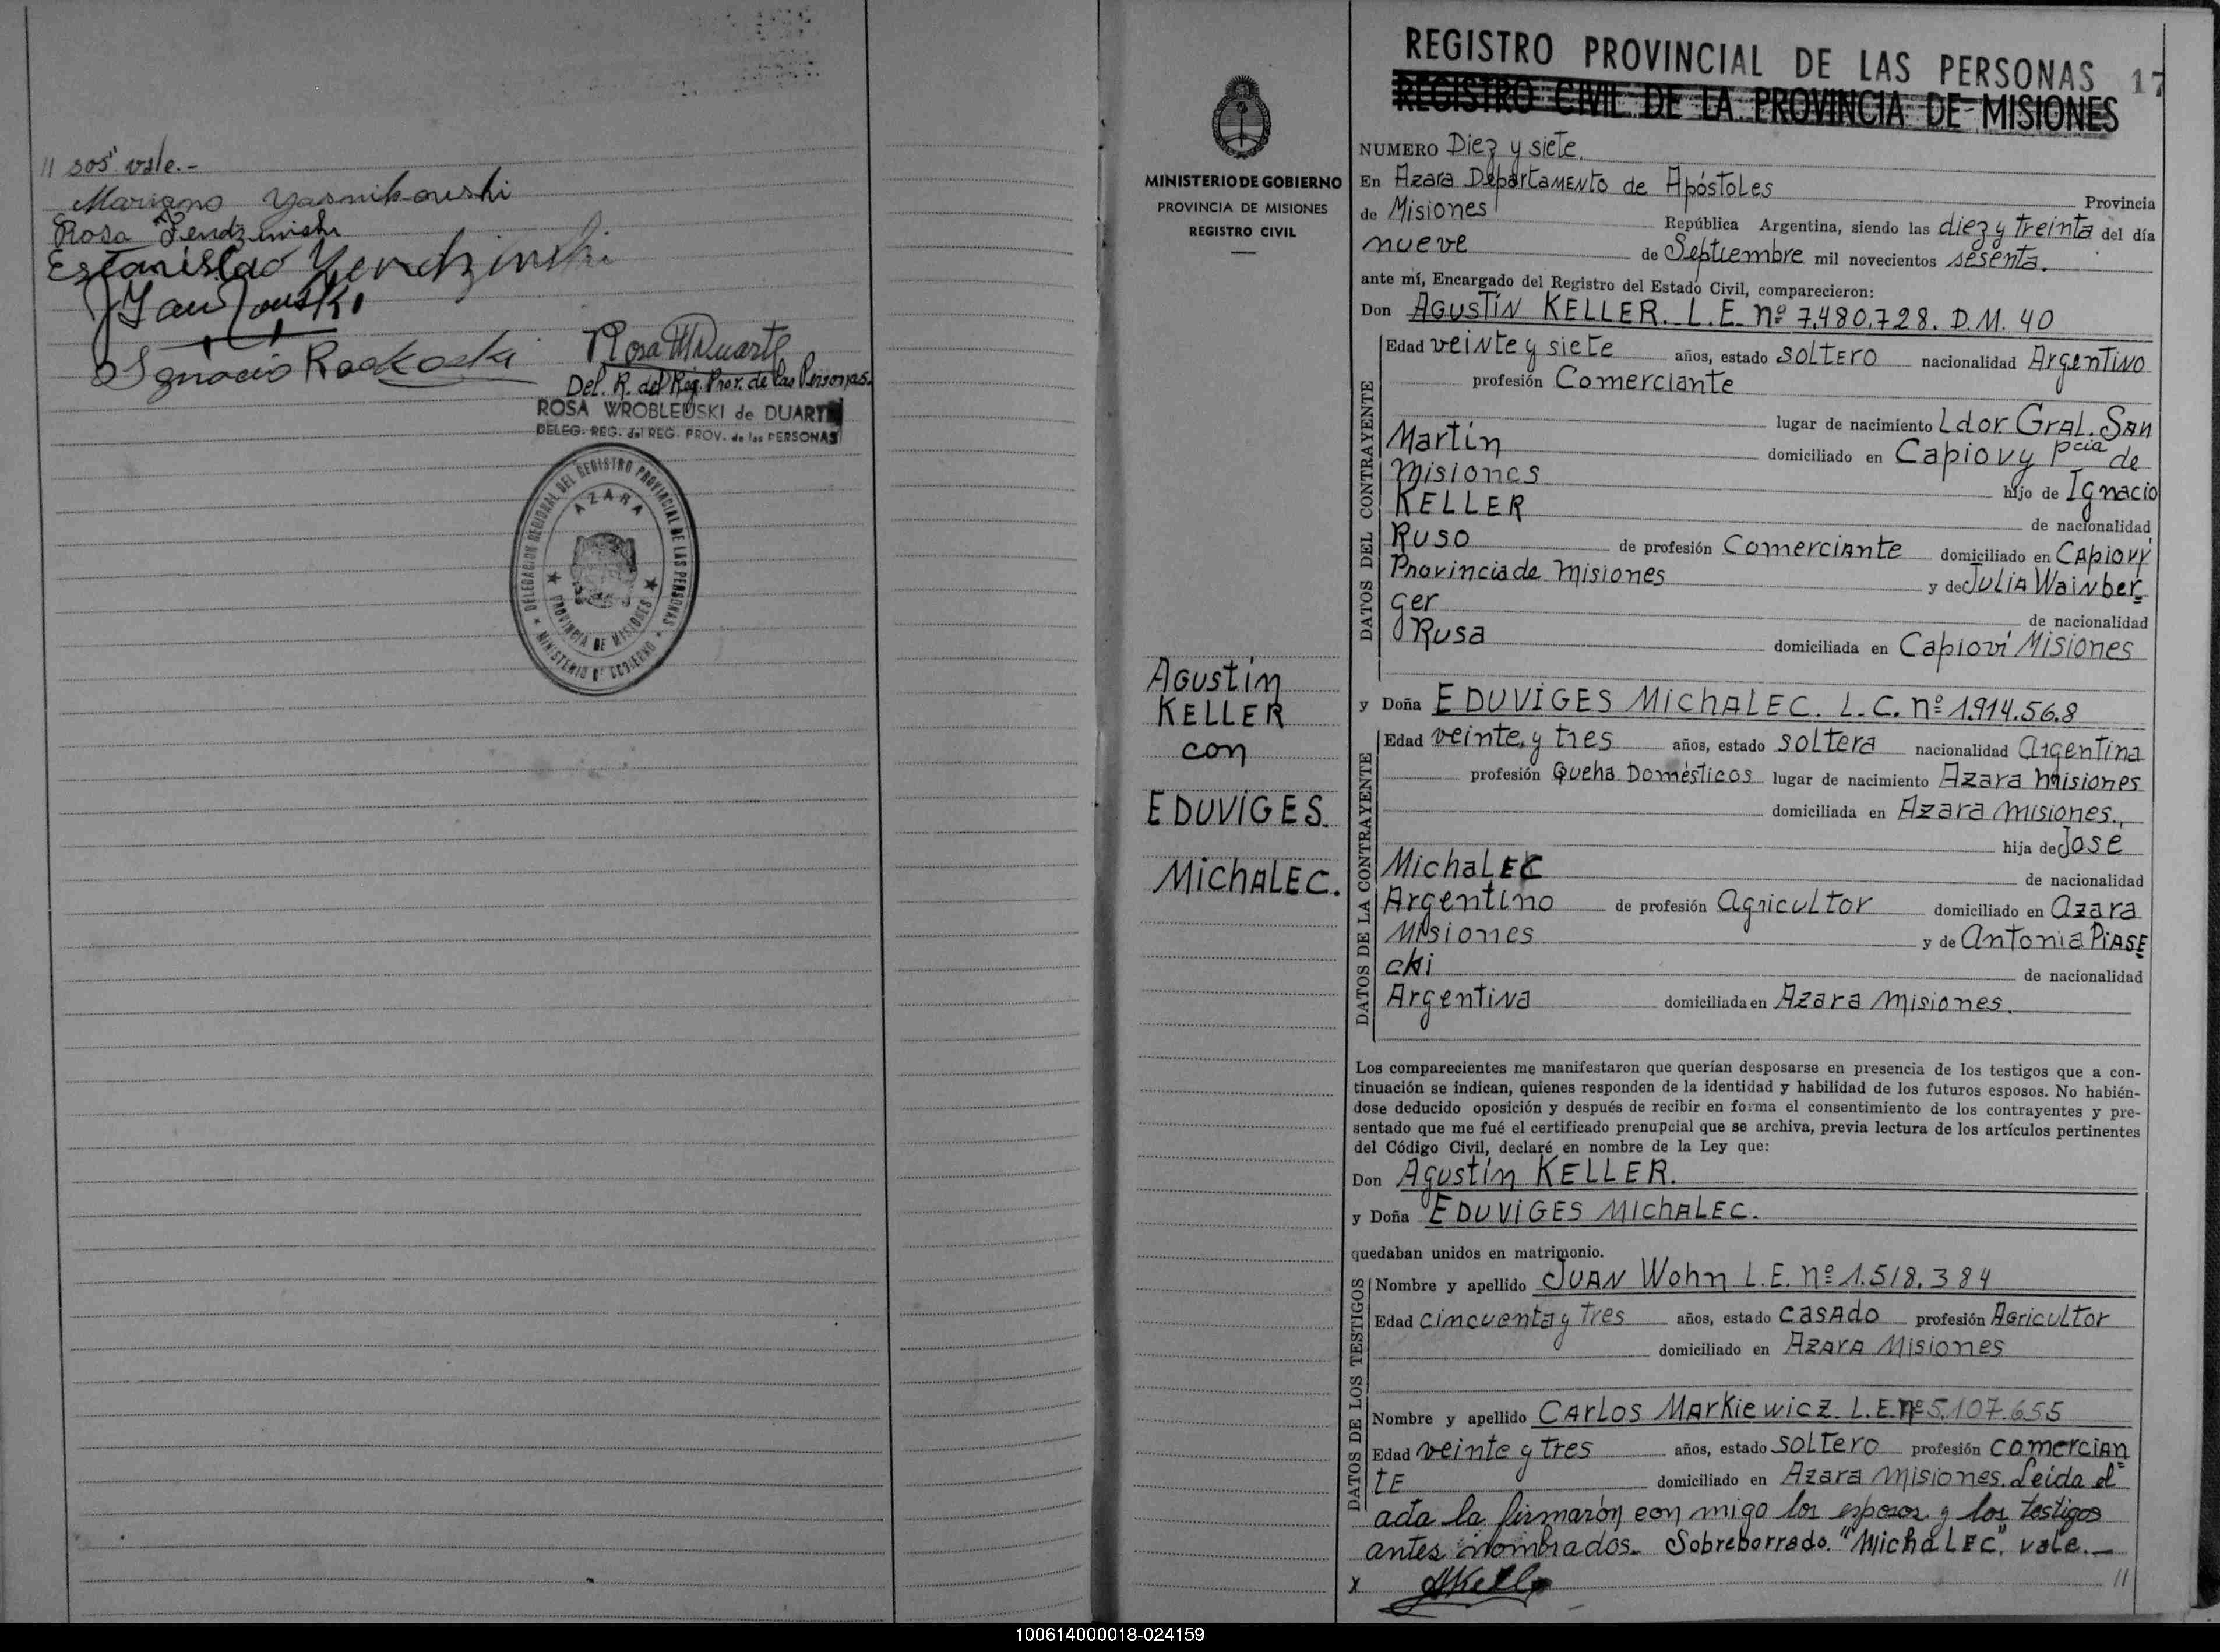 // sos" vale.-
Mariano Yasnikouski
Rosa Zendzinski
Estanislao Zendzinski
Ignacio Rockoski
Rosa W Duarte
Del. R. del Reg. Prov. de las Personas.
ROSA WROBLEUSKI de DUARTE
DELEG. REG. del REG. PROV. de las PERSONAS
DELEGACION REGIONAL DEL REGISTRO PROVINCIAL DE LAS PERSONAS
AZARA
PROVINCIA DE MISIONES
MINISTERIO DE GOBIERNO
MINISTERIO DE GOBIERNO
PROVINCIA DE MISIONES
REGISTRO CIVIL
Agustin
KELLER
con
EDUVIGES.
MichALEC.
REGISTRO PROVINCIAL DE LAS PERSONAS 17
REGISTRO CIVIL DE LA PROVINCIA DE MISIONES
NUMERO Diez y siete.
En Azara Departamento de Apóstoles
Provincia
de Misiones República Argentina, siendo las diez y treinta del día
nueve de Septiembre mil novecientos sesenta.
ante mí, Encargado del Registro del Estado Civil, comparecieron:
Don AGUSTÍN KELLER. L.E. nº 7.480.728. D.M. 40
DATOS DEL CONTRAYENTE
Edad veinte y siete años, estado SOLTERO nacionalidad Argentino
profesión Comerciante
lugar de nacimiento Ldor GraL. San
Martín domiciliado en Capiovy Pcia de
Misiones hijo de Ignacio
KELLER de nacionalidad
Ruso de profesión Comerciante domiciliado en Capiovy
Provincia de Misiones y de Julia Wainber=
ger de nacionalidad
Rusa domiciliada en Capioví Misiones
y Doña EDUVIGES MichALEC. L.C. nº 1.914.568
DATOS DE LA CONTRAYENTE
Edad veinte y tres años, estado soltera nacionalidad argentina
profesión Queha. Domésticos lugar de nacimiento Azara Misiones
domiciliada en Azara Misiones.,
hija de Jose
MichaLEC de nacionalidad
Argentino de profesión Agricultor domiciliado en Azara
Misiones y de Antonia Piase
cki de nacionalidad
Argentina domiciliada en Azara Misiones.
Los comparecientes me manifestaron que querían desposarse en presencia de los testigos que a con-
tinuación se indican, quienes responden de la identidad y habilidad de los futuros esposos. No habién-
dose deducido oposición y después de recibir en forma el consentimiento de los contrayentes y pre-
sentado que me fué el certificado prenupcial que se archiva, previa lectura de los artículos pertinentes
del Código Civil, declaré en nombre de la Ley que:
Don Agustín KELLER.
y Doña EDUVIGES MichALEC.
quedaban unidos en matrimonio.
DATOS DE LOS TESTIGOS
Nombre y apellido JUAN Wohn L.E. nº 1.518.384
Edad cincuenta y tres años, estado casado profesión Agricultor
domiciliado en Azara Misiones
Nombre y apellido Carlos Markiewicz L.E. nº 5.107.655
Edad veinte y tres años, estado soltero profesión comercian=
te domiciliado en Azara Misiones. Leída el
acta la firmarón con migo los esposos y los testigos
antes nombrados. Sobreborrado "MichaLEC". vale.—
x AKeller //
100614000018-024159